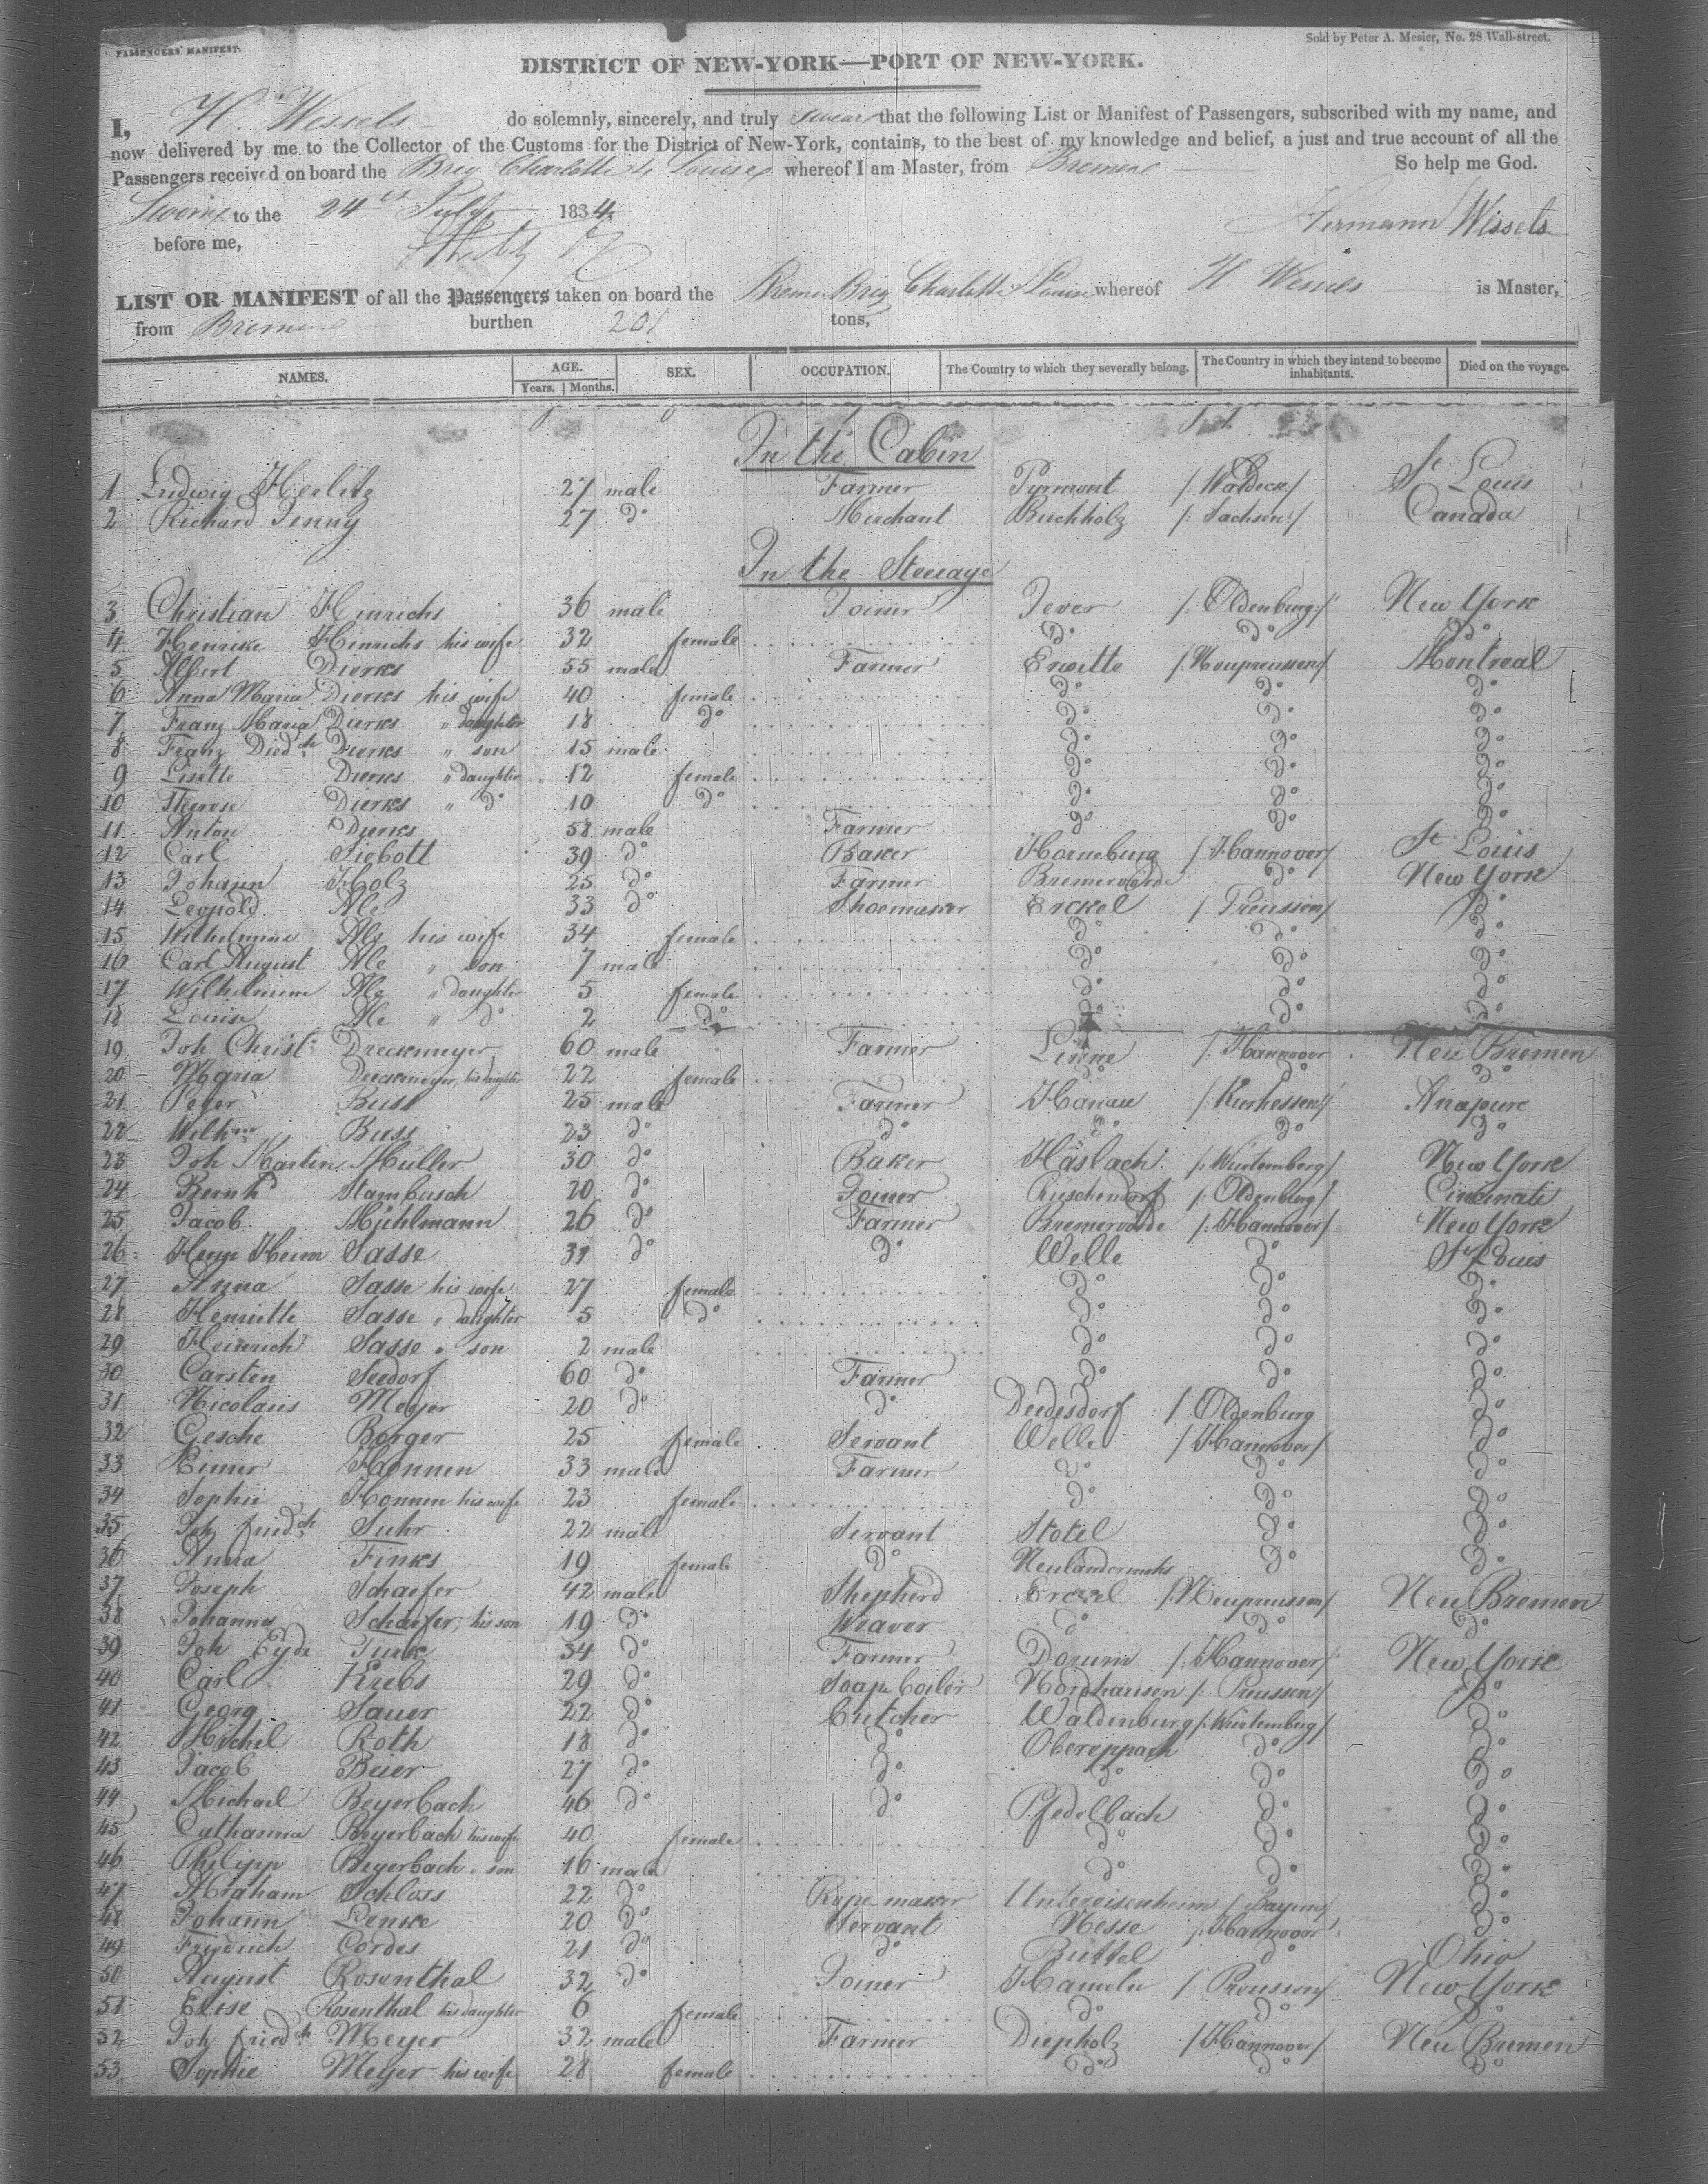 PASSENGERS' MANIFEST.
Sold by Peter A. Mesier, No. 28 Wall-street.
DISTRICT OF NEW-YORK—PORT OF NEW-YORK.
I, H. Wessels do solemnly, sincerely, and truly swear that the following List or Manifest of Passengers, subscribed with my name, and
now delivered by me to the Collector of the Customs for the District of New-York, contains, to the best of my knowledge and belief, a just and true account of all the
Passengers received on board the Brig Charlotte & Louise whereof I am Master, from Bremen So help me God.
Sworn to the 24th July 1834
Hermann Wessels
before me,
LIST OR MANIFEST of all the Passengers taken on board the Bremen Brig Charlotte & Louise whereof H. Wessels is Master,
from Bremen burthen 201 tons,
NAMES. AGE. Years. Months. SEX. OCCUPATION. The Country to which they severally belong. The Country in which they intend to become inhabitants. Died on the voyage.
In the Cabin
1 Ludwig Herlitz 27 male Farmer Pyrmont /:Waldeck:/ St Louis
2 Richard Jenny 27 do Merchant Buchholz /:Sachsen:/ Canada
In the Steerage
3 Christian Hinrichs 36 male Joiner Jever /:Oldenburg:/ New York
4 Henrike Hinrichs his wife 32 female do do do
5 Albert Dierks 55 male Farmer Erwitte /:Neupreussen/ Montreal
6 Anna Maria Dierks his wife 40 female do do do
7 Franz Maria Dierks " daughter 18 do do do do
8 Franz Diedch Dierks " son 15 male do do do
9 Lisette Dierks " daughter 12 female do do do
10 Therese Dierks " do 10 do do do do
11 Anton Dierks 58 male Farmer do do do
12 Carl Siebott 39 do Baker Horneburg /:Hannover/ St Louis
13 Johann Holz 25 do Farmer Bremervörde do New York
14 Leopold Ale 33 do Shoemaker Erckel /:Preussen/ do
15 Wilhelmine Ale his wife 34 female do do do
16 Carl August Ale " son 7 male do do do
17 Wilhelmine Ale " daughter 5 female do do do
18 Louise Ale " do 2 do do do do
19 Joh Christ Dreckmeyer 60 male Farmer Levine /:Hannover New Bremen
20 Maria Dreckmeyer, his daughter 22 female do do do
21 Peter Buss 25 male Farmer Hanau /:Kurhessen/ Anapure
22 Wilhm Buss 23 do do do do do
23 Joh Martin Müller 30 do Baker Häslach /:Würtemberg/ New York
24 Bernhd Stambusch 20 do Joiner Rüschendorf /:Oldenburg/ Cincinati
25 Jacob Mühlmann 26 do Farmer Bremervörde /:Hannover/ New York
26 Herm Heinr Sasse 31 do do Welle do St Louis
27 Anna Sasse his wife 27 female do do do
28 Henriette Sasse " daughter 5 do do do do
29 Heinrich Sasse " son 2 male do do do
30 Carsten Seedorf 60 do Farmer do do do
31 Nicolaus Meyer 20 do do Dedesdorf /:Oldenburg do
32 Gesche Borger 25 female Servant Welle /:Hannover/ do
33 Eimer Honnen 33 male Farmer do do do
34 Sophie Honnen his wife 23 female do do do
35 Joh friedch Suhr 22 male Servant Stotel do do
36 Anna Finks 19 female do do do
37 Joseph Schaefer 42 male Shepherd Erckel /:Neupreussen/ New Bremen
38 Johannes Schaefer, his son 19 do Weaver do do do
39 Joh Eyde Turk 34 do Farmer Dorum /:Hannover/ New York
40 Carl Krebs 29 do Soap boiler Nordhausen /:Preussen/ do
41 Georg Sauer 22 do Butcher Waldenburg /:Würtemberg/ do
42 Michel Roth 18 do do Obereppach do do
43 Jacob Beier 27 do do do do do
44 Michael Beyerbach 46 do do Pfedelbach do do
45 Catharina Beyerbach his wife 40 female do do do
46 Philipp Beyerbach " son 16 male do do do
47 Abraham Schloss 22 do Rope maker Untereisenheim /:Bayern/ do
48 Johann Lenke 20 do Servant Nesse /:Hannover do
49 Friedrich Cordes 21 do do Büttel do Ohio
50 August Rosenthal 32 do Joiner Hameln /:Preussen/ New York
51 Elise Rosenthal his daughter 6 female do do do
52 Joh friedch Meyer 32 male Farmer Diepholz /:Hannover/ New Bremen
53 Sophie Meyer his wife 28 female do do do